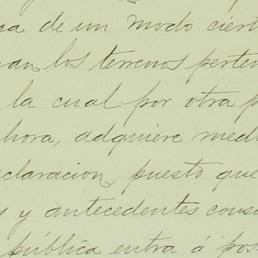 a de un modo cier
an los terrenos perten
la cual por otra p
ahora, adquiere med
claracion, puesto que
s y antecedentes cons
pública entra á pos